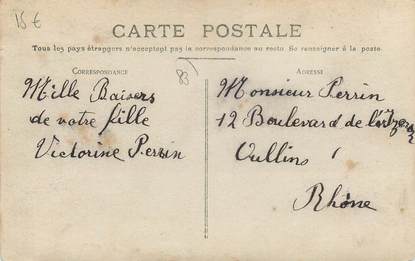 15€
CARTE POSTALE
Tous les pays étrangers n'acceptent pas la correspondance au recto. Se renseigner à la poste.
CORRESPONDANCE
83
ADRESSE
Mille Baisers
de votre fille
Victorine Perrin
Monsieur Perrin
12 Boulevard de
Oullins
Rhône